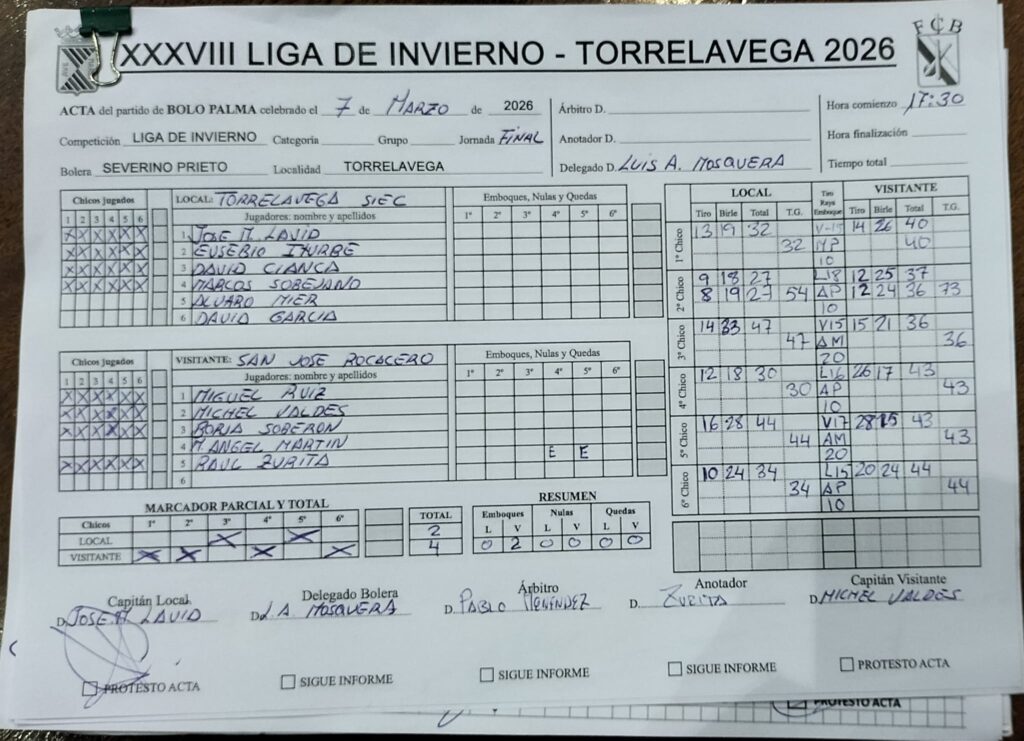 XXXVIII LIGA DE INVIERNO - TORRELAVEGA 2026
FCB
ACTA del partido de BOLO PALMA celebrado el 7 de MARZO de 2026
Competición LIGA DE INVIERNO Categoría Grupo Jornada FINAL
Bolera SEVERINO PRIETO Localidad TORRELAVEGA
Árbitro D.
Anotador D.
Delegado D. LUIS A. MOSQUERA
Hora comienzo 17:30
Hora finalización
Tiempo total
Chicos jugados LOCAL: TORRELAVEGA SIEC Emboques, Nulas y Quedas
1 2 3 4 5 6 Jugadores: nombre y apellidos 1º 2º 3º 4º 5º 6º
X X X X X X 1 JOSE M. LAVID
X X X X X X 2 EUSEBIO ITURBE
X X X X X X 3 DAVID CIANCA
X X X X X X 4 MARCOS SOBEJANO
5 ALVARO MIER
6 DAVID GARCIA
Chicos jugados VISITANTE: SAN JOSE ROCACERO Emboques, Nulas y Quedas
1 2 3 4 5 6 Jugadores: nombre y apellidos 1º 2º 3º 4º 5º 6º
X X X X X X 1 MIGUEL RUIZ
X X X X X X 2 MICHEL VALDES
X X X X X X 3 BORJA SOBERON
4 M. ANGEL MARTIN E E
X X X X X X 5 RAUL ZURITA
6
LOCAL Tiro Raya Emboque VISITANTE
Tiro Birle Total T.G. Tiro Birle Total T.G.
1º Chico 13 19 32 14 26 40
32 MP 40
10
2º Chico 9 18 27 L18 12 25 37
8 19 27 54 AP 12 24 36 73
10
3º Chico 14 33 47 V15 15 21 36
47 AM 36
20
4º Chico 12 18 30 L16 26 17 43
30 AP 43
10
5º Chico 16 28 44 V17 28 15 43
44 AM 43
20
6º Chico 10 24 34 L15 20 24 44
34 AP 44
10
MARCADOR PARCIAL Y TOTAL
Chicos 1º 2º 3º 4º 5º 6º TOTAL
LOCAL X X 2
VISITANTE X X X X 4
RESUMEN
Emboques Nulas Quedas
L V L V L V
0 2 0 0 0 0
Capitán Local Delegado Bolera Árbitro Anotador Capitán Visitante
D. JOSE M. LAVID D. L.A. MOSQUERA D. PABLO MENÉNDEZ D. ZURITA D. MICHEL VALDES
PROTESTO ACTA SIGUE INFORME SIGUE INFORME SIGUE INFORME PROTESTO ACTA
PROTESTO ACTA